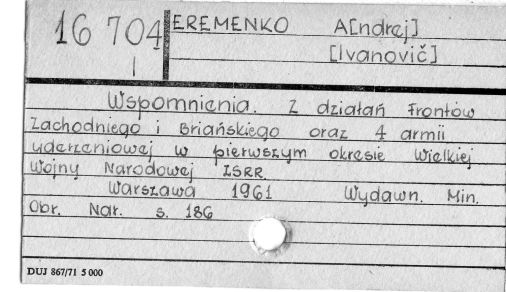 16 704
1
EREMENKO A[ndrej]
[Ivanovič]
Wspomnienia. Z działań Frontów
Zachodniego i Briańskiego oraz 4 armii
uderzeniowej w pierwszym okresie Wielkiej
Wojny Narodowej ZSRR.
Warszawa 1961 Wydawn. Min.
Obr. Nar. s. 186
DUJ 867/71 5 000